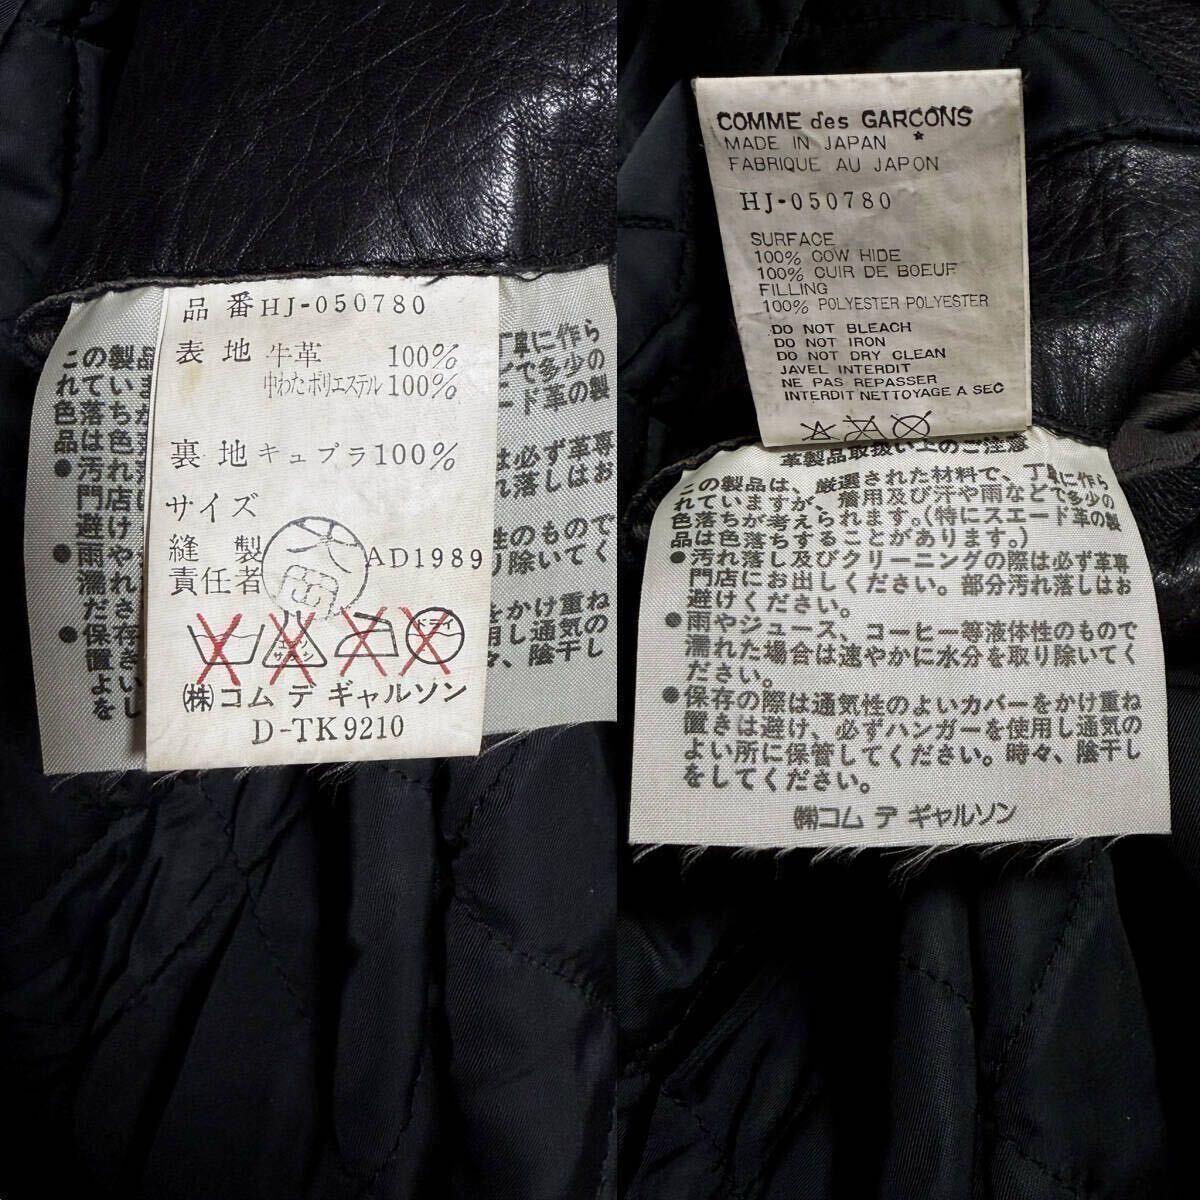 品番HJ-050780
表地 牛革 100%
中わたポリエステル100%
裏地キュプラ100%
サイズ
縫製
責任者
AD1989
エンソ
サラシ
ドライ
㈱コム デ ギャルソン
D-TK9210
丁寧に作ら
で多少の
ード革の製
は必ず革専
れ落しはお
性のもので
り除いてく
をかけ重ね
用し通気の
、陰干し
COMME des GARCONS
MADE IN JAPAN *
FABRIQUE AU JAPON
HJ-050780
SURFACE
100% COW HIDE
100% CUIR DE BOEUF
FILLING
100% POLYESTER-POLYESTER
DO NOT BLEACH
DO NOT IRON
DO NOT DRY CLEAN
JAVEL INTERDIT
NE PAS REPASSER
INTERDIT NETTOYAGE A SEC
革製品取扱い上のご注意
この製品は、厳選された材料で、丁寧に作ら
れていますが、着用及び汗や雨などで多少の
色落ちが考えられます。(特にスエード革の製
品は色落ちすることがあります。)
●汚れ落し及びクリーニングの際は必ず革専
門店にお出しください。部分汚れ落しはお
避けください。
●雨やジュース、コーヒー等液体性のもので
濡れた場合は速やかに水分を取り除いてく
ださい。
●保存の際は通気性のよいカバーをかけ重ね
置きは避け、必ずハンガーを使用し通気の
よい所に保管してください。時々、陰干し
をしてください。
㈱コム デ ギャルソン